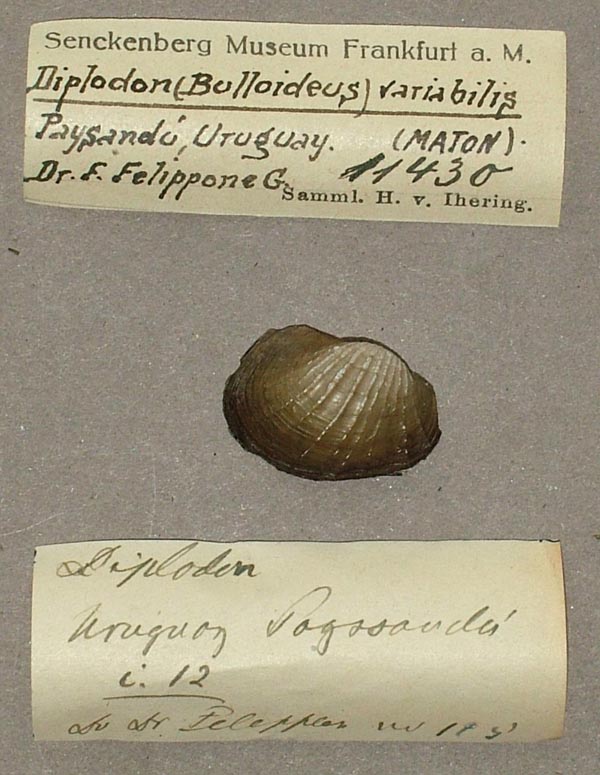 Senckenberg Museum Frankfurt a. M.
Diplodon (Bulloideus) variabilis
Paysandú, Uruguay. (MATON).
Dr. F. Felippone G. 11430
Samml. H. v. Ihering.
Diplodon
Uruguay Payssandú
i. 12
Dr